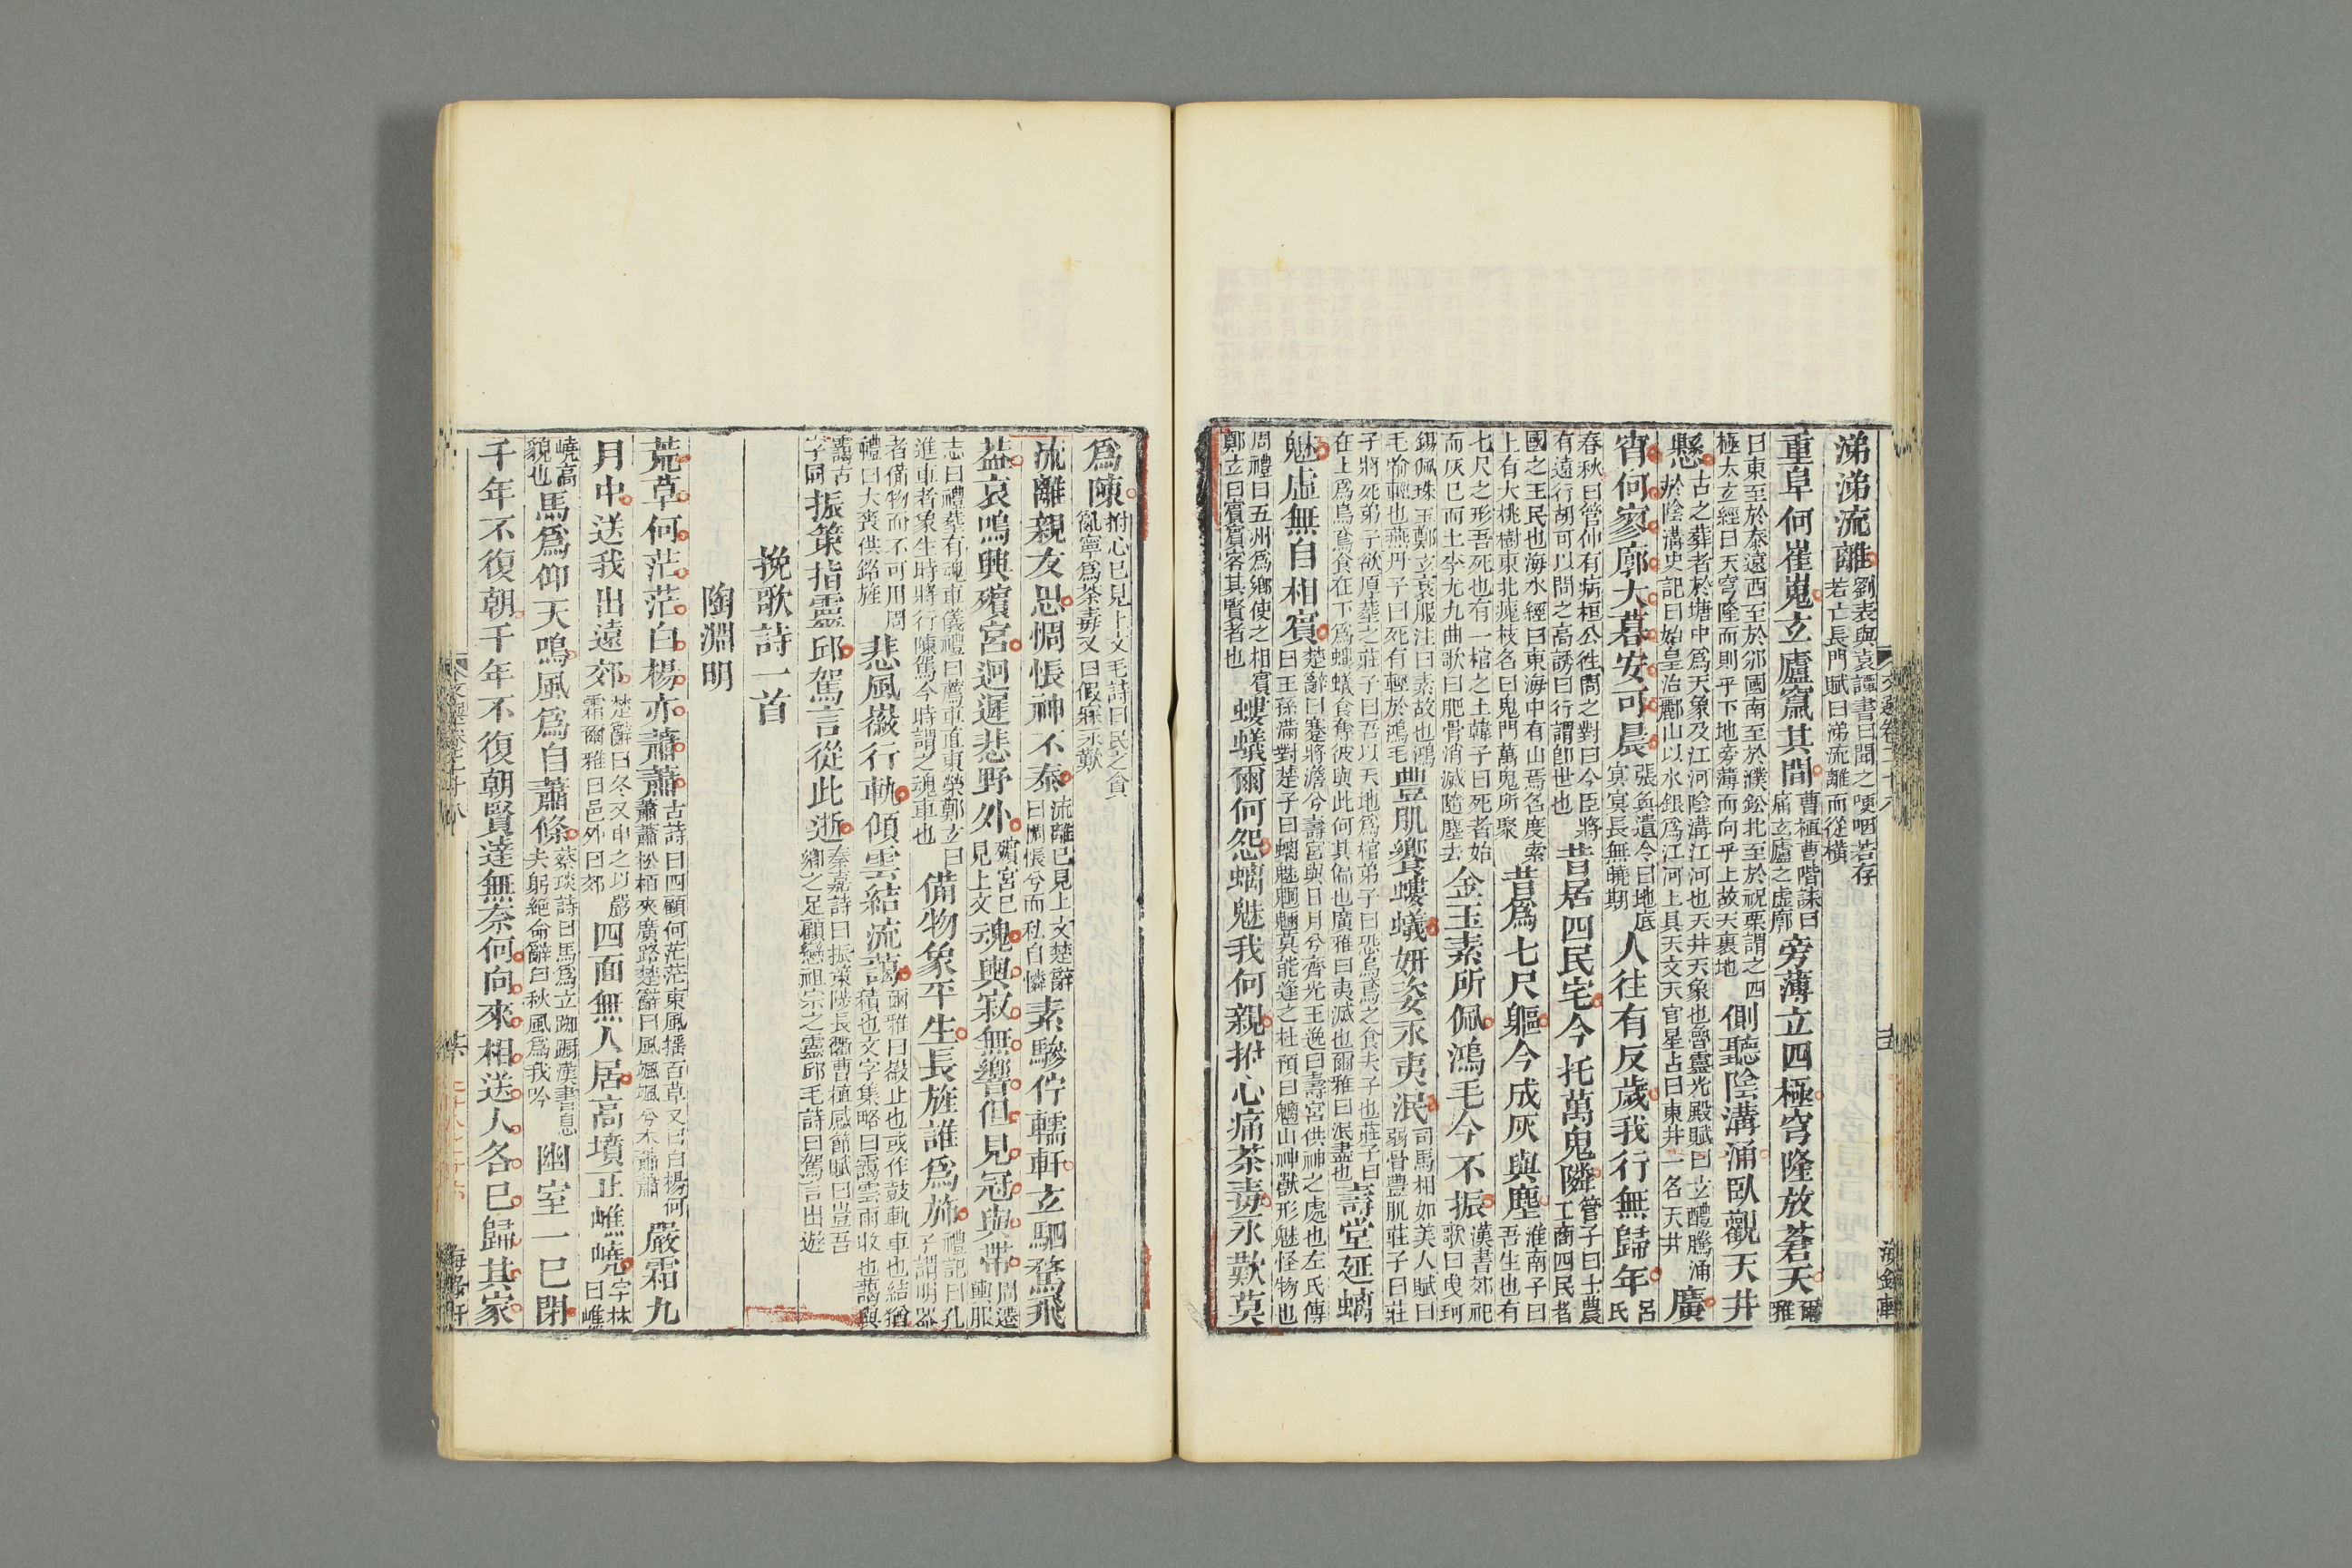 涕涕流離劉表與袁譚書曰聞之哽咽若存若亡長門賦曰涕流離而從橫
重阜何崔嵬玄廬竄其間曹植曹喈誄曰痛玄廬之虛廓旁薄立四極穹隆放蒼天爾雅
曰東至於泰遠西至於邠國南至於濮鈆北至於祝栗謂之四極太玄經曰天穹隆而則乎下地旁薄而向乎上故天裹地側聽陰溝涌臥觀天井
懸古之葬者於塘中為天象及江河陰溝江河也天井天象也魯靈光殿賦曰玄醴騰涌於陰溝史記曰始皇治酈山以水銀為江河上具天文天官星占曰東井一名天井廣
宵何寥廓大暮安可晨張奐遺令曰地底冥冥長無曉期人往有反歲我行無歸年呂氏
春秋曰管仲有病桓公往問之對曰今臣將有遠行胡可以問之高誘曰行謂卽世也昔居四民宅今托萬鬼隣管子曰士農工商四民者
國之王民也海水經曰東海中有山焉名度索上有大桃樹東北瘣枝名曰鬼門萬鬼所聚昔為七尺軀今成灰與塵淮南子曰吾生也有
七尺之形吾死也有一棺之土韓子曰死者始而灰已而土李尤九曲歌曰肥骨消滅隨塵去金玉素所佩鴻毛今不振漢書郊祀歌曰曳珂
錫佩珠玉鄭玄哀服注曰素故也鴻毛喻輕也燕丹子曰死有輕於鴻毛豐肌饗螻蟻妍姿永夷泯司馬相如美人賦曰弱骨豐肌莊子曰莊
子將死弟子欲厚葬之莊子曰吾以天地為棺弟子曰恐烏鳶之食夫子也莊子曰在上為烏鳶食在下為螻蟻食奪彼與此何其偏也廣雅曰夷滅也爾雅曰泯盡也壽堂延螭
魅虛無自相賓楚辭曰蹇將澹兮壽宮與日月兮齊光王逸曰壽宮供神之處也左氏傳曰王孫滿對楚子曰螭魅魍魎莫能逢之杜預曰螭山神獸形魅怪物也
周禮曰五州為鄉使之相賓鄭玄曰賓賓客其賢者也螻蟻爾何怨螭魅我何親拊心痛荼毒永歎莫
為陳拊心已見上文毛詩曰民之貪亂寧為荼毒又曰假寐永歎
流離親友思惆悵神不泰流離已見上文楚辭曰惆悵兮而私自憐素驂佇轜軒玄駟騖飛
葢哀鳴興殯宮迴遲悲野外殯宮已見上文魂輿寂無響但見冠與帶周遷輿服
志曰禮葬有魂車儀禮曰薦車直東榮鄭玄曰進車者象生時將行陳駕今時謂之魂車也備物象平生長旌誰為旆禮記曰孔子謂明器
者備物而不可用周禮曰大喪供銘旌悲風徽行軌傾雲結流藹爾雅曰徽止也或作鼓軌車也結猶積也文字集略曰靄雲雨狀也藹與
靄古字同振策指靈邱駕言從此逝秦嘉詩曰振策陟長衢曹植感節賦曰豈吾鄉之足顧戀祖宗之靈邱毛詩曰駕言出遊
挽歌詩一首
陶淵明
荒草何茫茫白楊亦蕭蕭古詩曰四顧何茫茫東風搖百草又曰白楊何蕭蕭松栢夾廣路楚辭曰風颯颯兮木蕭蕭嚴霜九
月中送我出遠郊楚辭曰冬又申之以嚴霜爾雅曰邑外曰郊四面無人居高墳正嶕嶢字林曰嶕
嶢高貌也馬為仰天鳴風為自蕭條蔡琰詩曰馬為立踟躕漢書息夫躬絕命辭曰秋風為我吟幽室一已閉
千年不復朝千年不復朝賢達無奈何向來相送人各已歸其家